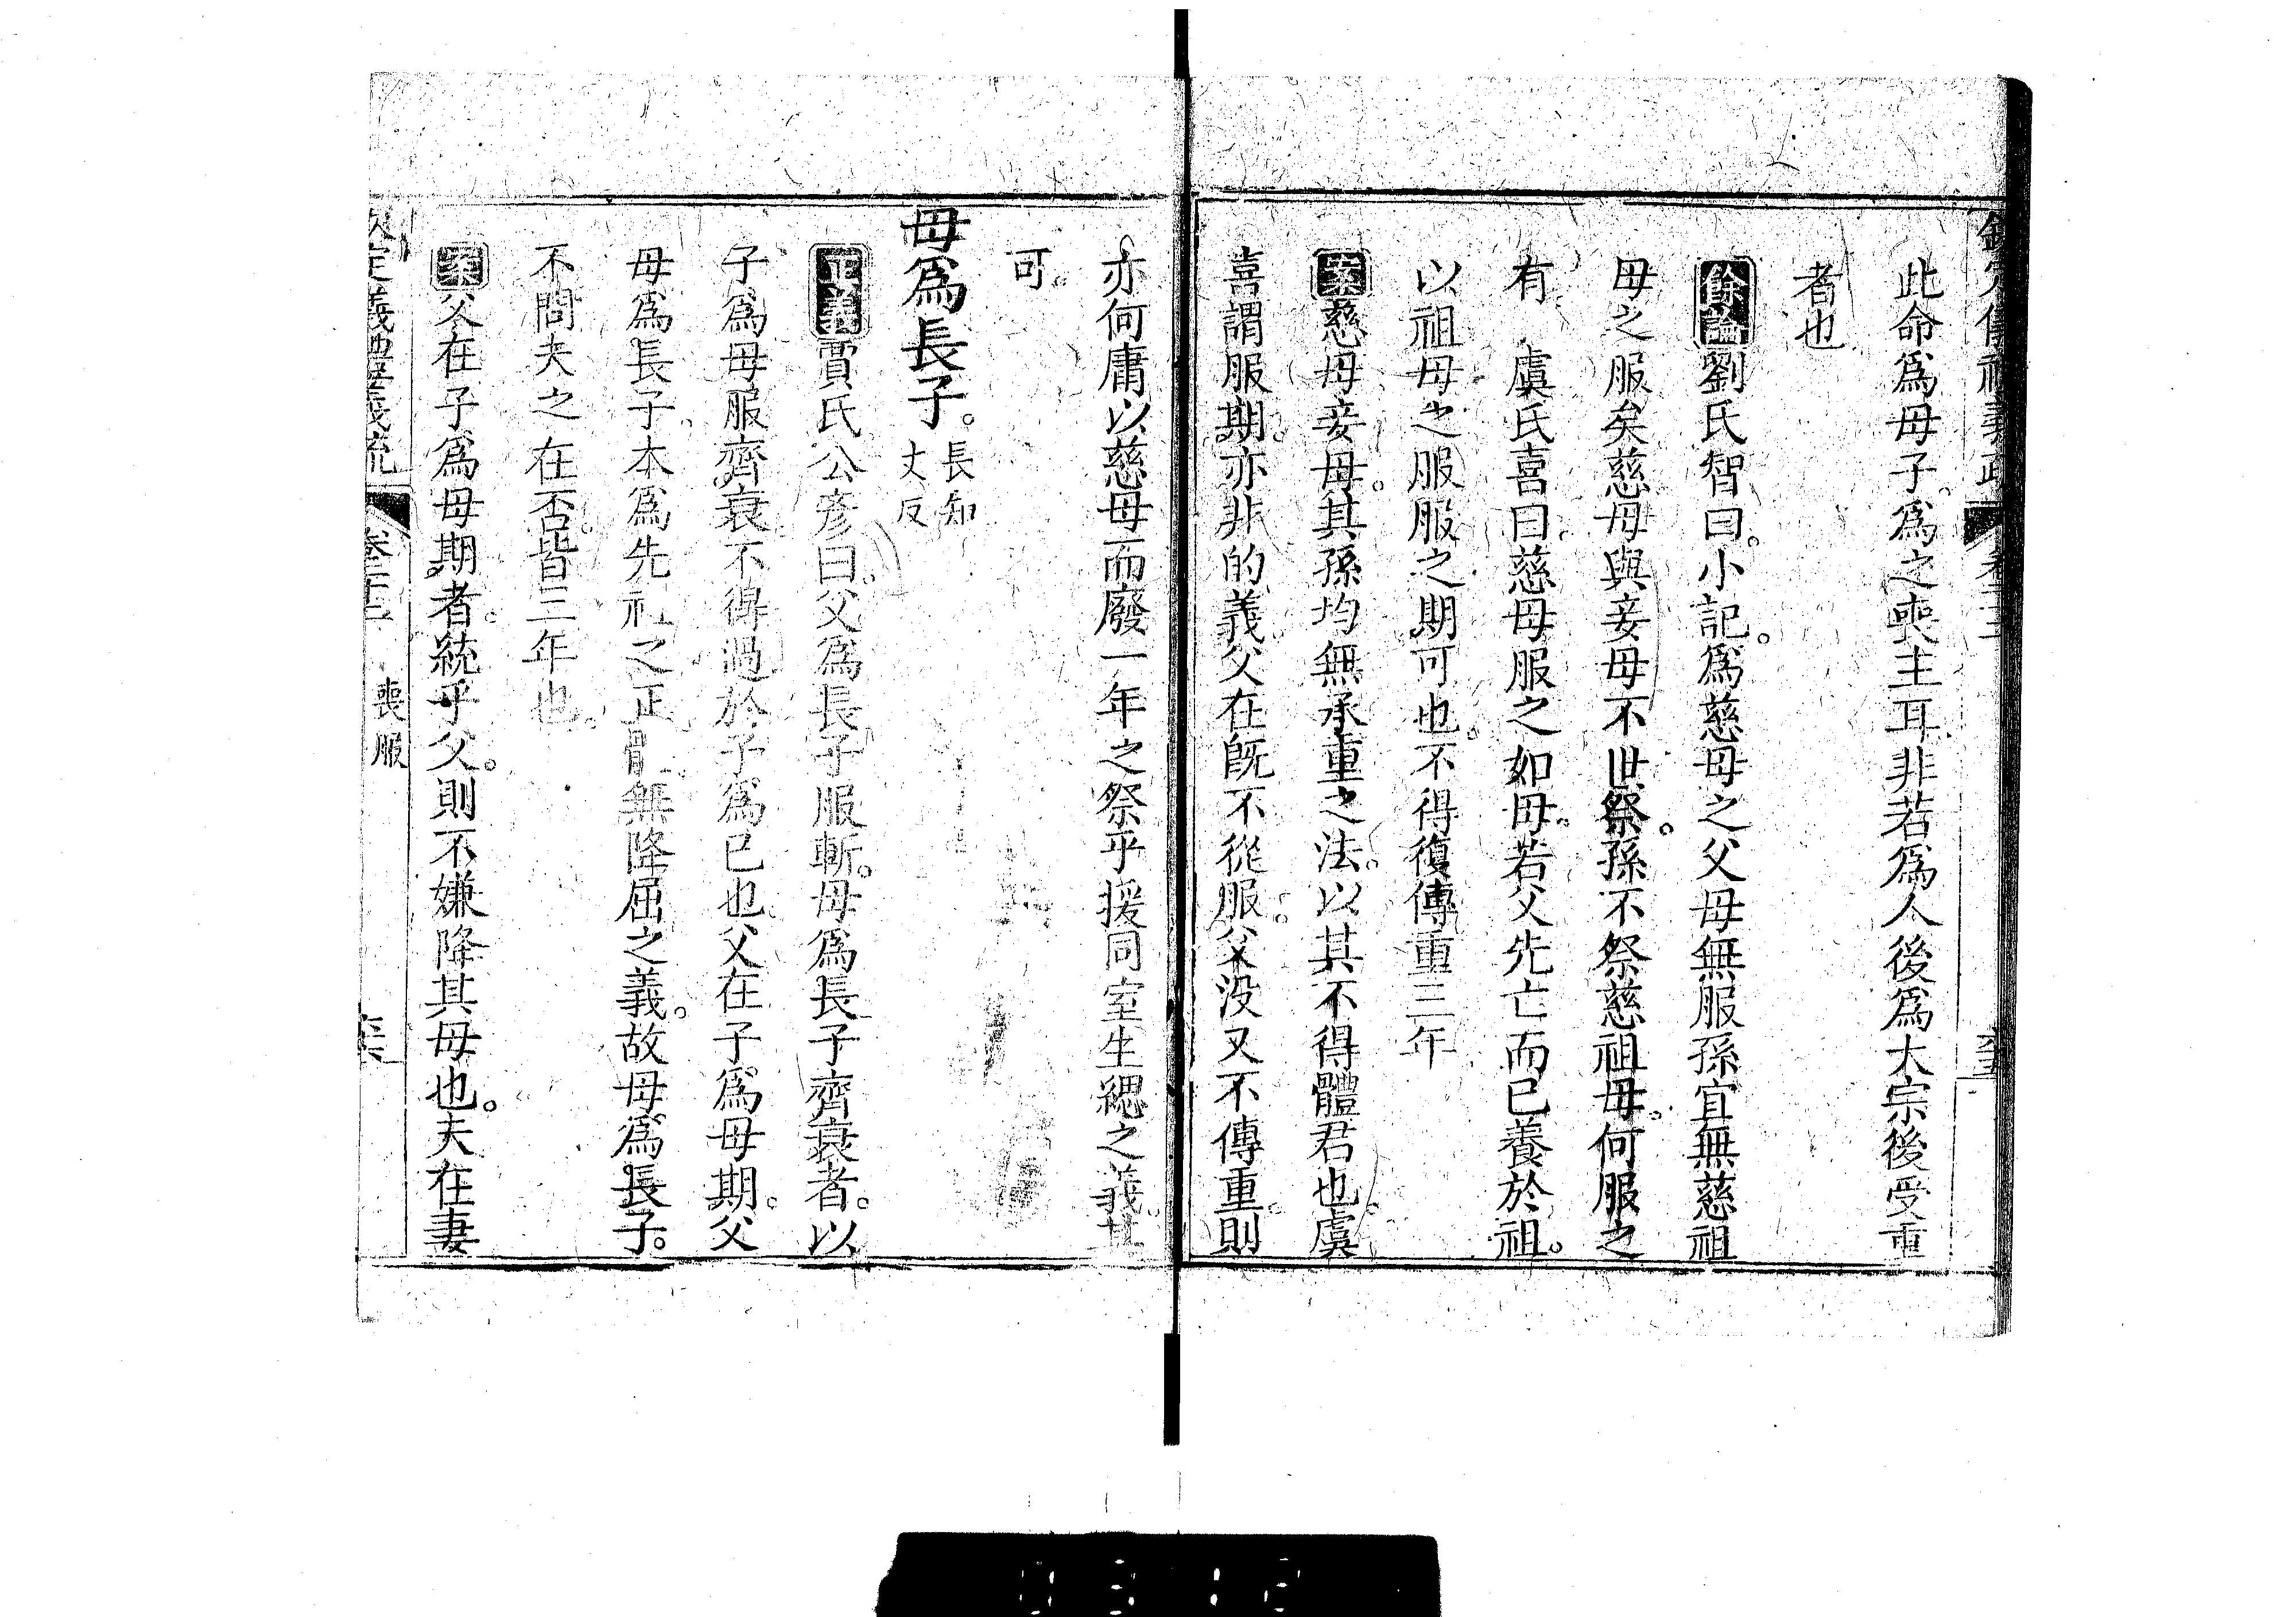 此命爲母子。爲之喪主耳。非若爲人後爲大宗後受重
者也
餘論劉氏智曰。小記。爲慈母之父母無服孫宜無慈祖
母之服矣慈母與妾母不世祭。孫不祭慈祖母。何服之
有　虞氏喜曰。慈母服之如母。若父先亡而已養於祖。
以祖母之服服之期可也。不得復傳重三年
案慈母妾母。其孫均無承重之法。以其不得體君也。虞
喜謂服期。亦非的義父在既不從服。父没又不傳重。則
亦何庸以慈母而廢一年之祭乎援同室生緦之義其
可。
母爲長子。長知丈反
正義賈氏公彦曰。父爲長子服斬。母爲長子齊衰者。以
子爲母服齊衰不得過於子爲已也。父在子爲母期。父
母爲長子。本爲先祖之正體無降屈之義。故母爲長子。
不問夫之在否。皆三年也。
案父在子爲母期者。統乎父。則不嫌降其母也。夫在妻
欽定儀禮義疏 喪服